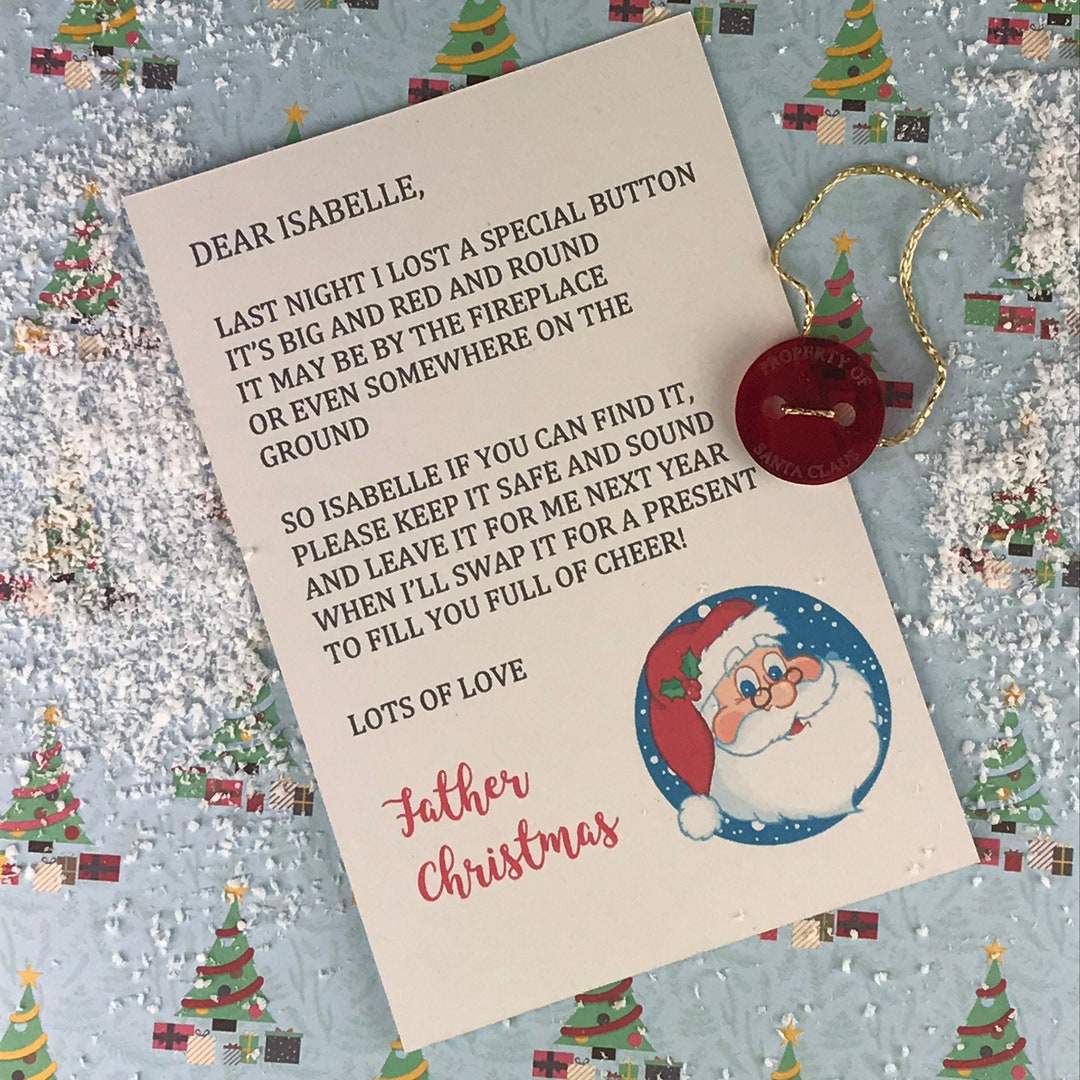 DEAR ISABELLE,
LAST NIGHT I LOST A SPECIAL BUTTON
IT'S BIG AND RED AND ROUND
IT MAY BE BY THE FIREPLACE
OR EVEN SOMEWHERE ON THE
GROUND
SO ISABELLE IF YOU CAN FIND IT,
PLEASE KEEP IT SAFE AND SOUND
AND LEAVE IT FOR ME NEXT YEAR
WHEN I'LL SWAP IT FOR A PRESENT
TO FILL YOU FULL OF CHEER!
LOTS OF LOVE
Father
Christmas
PROPERTY OF
SANTA CLAUS